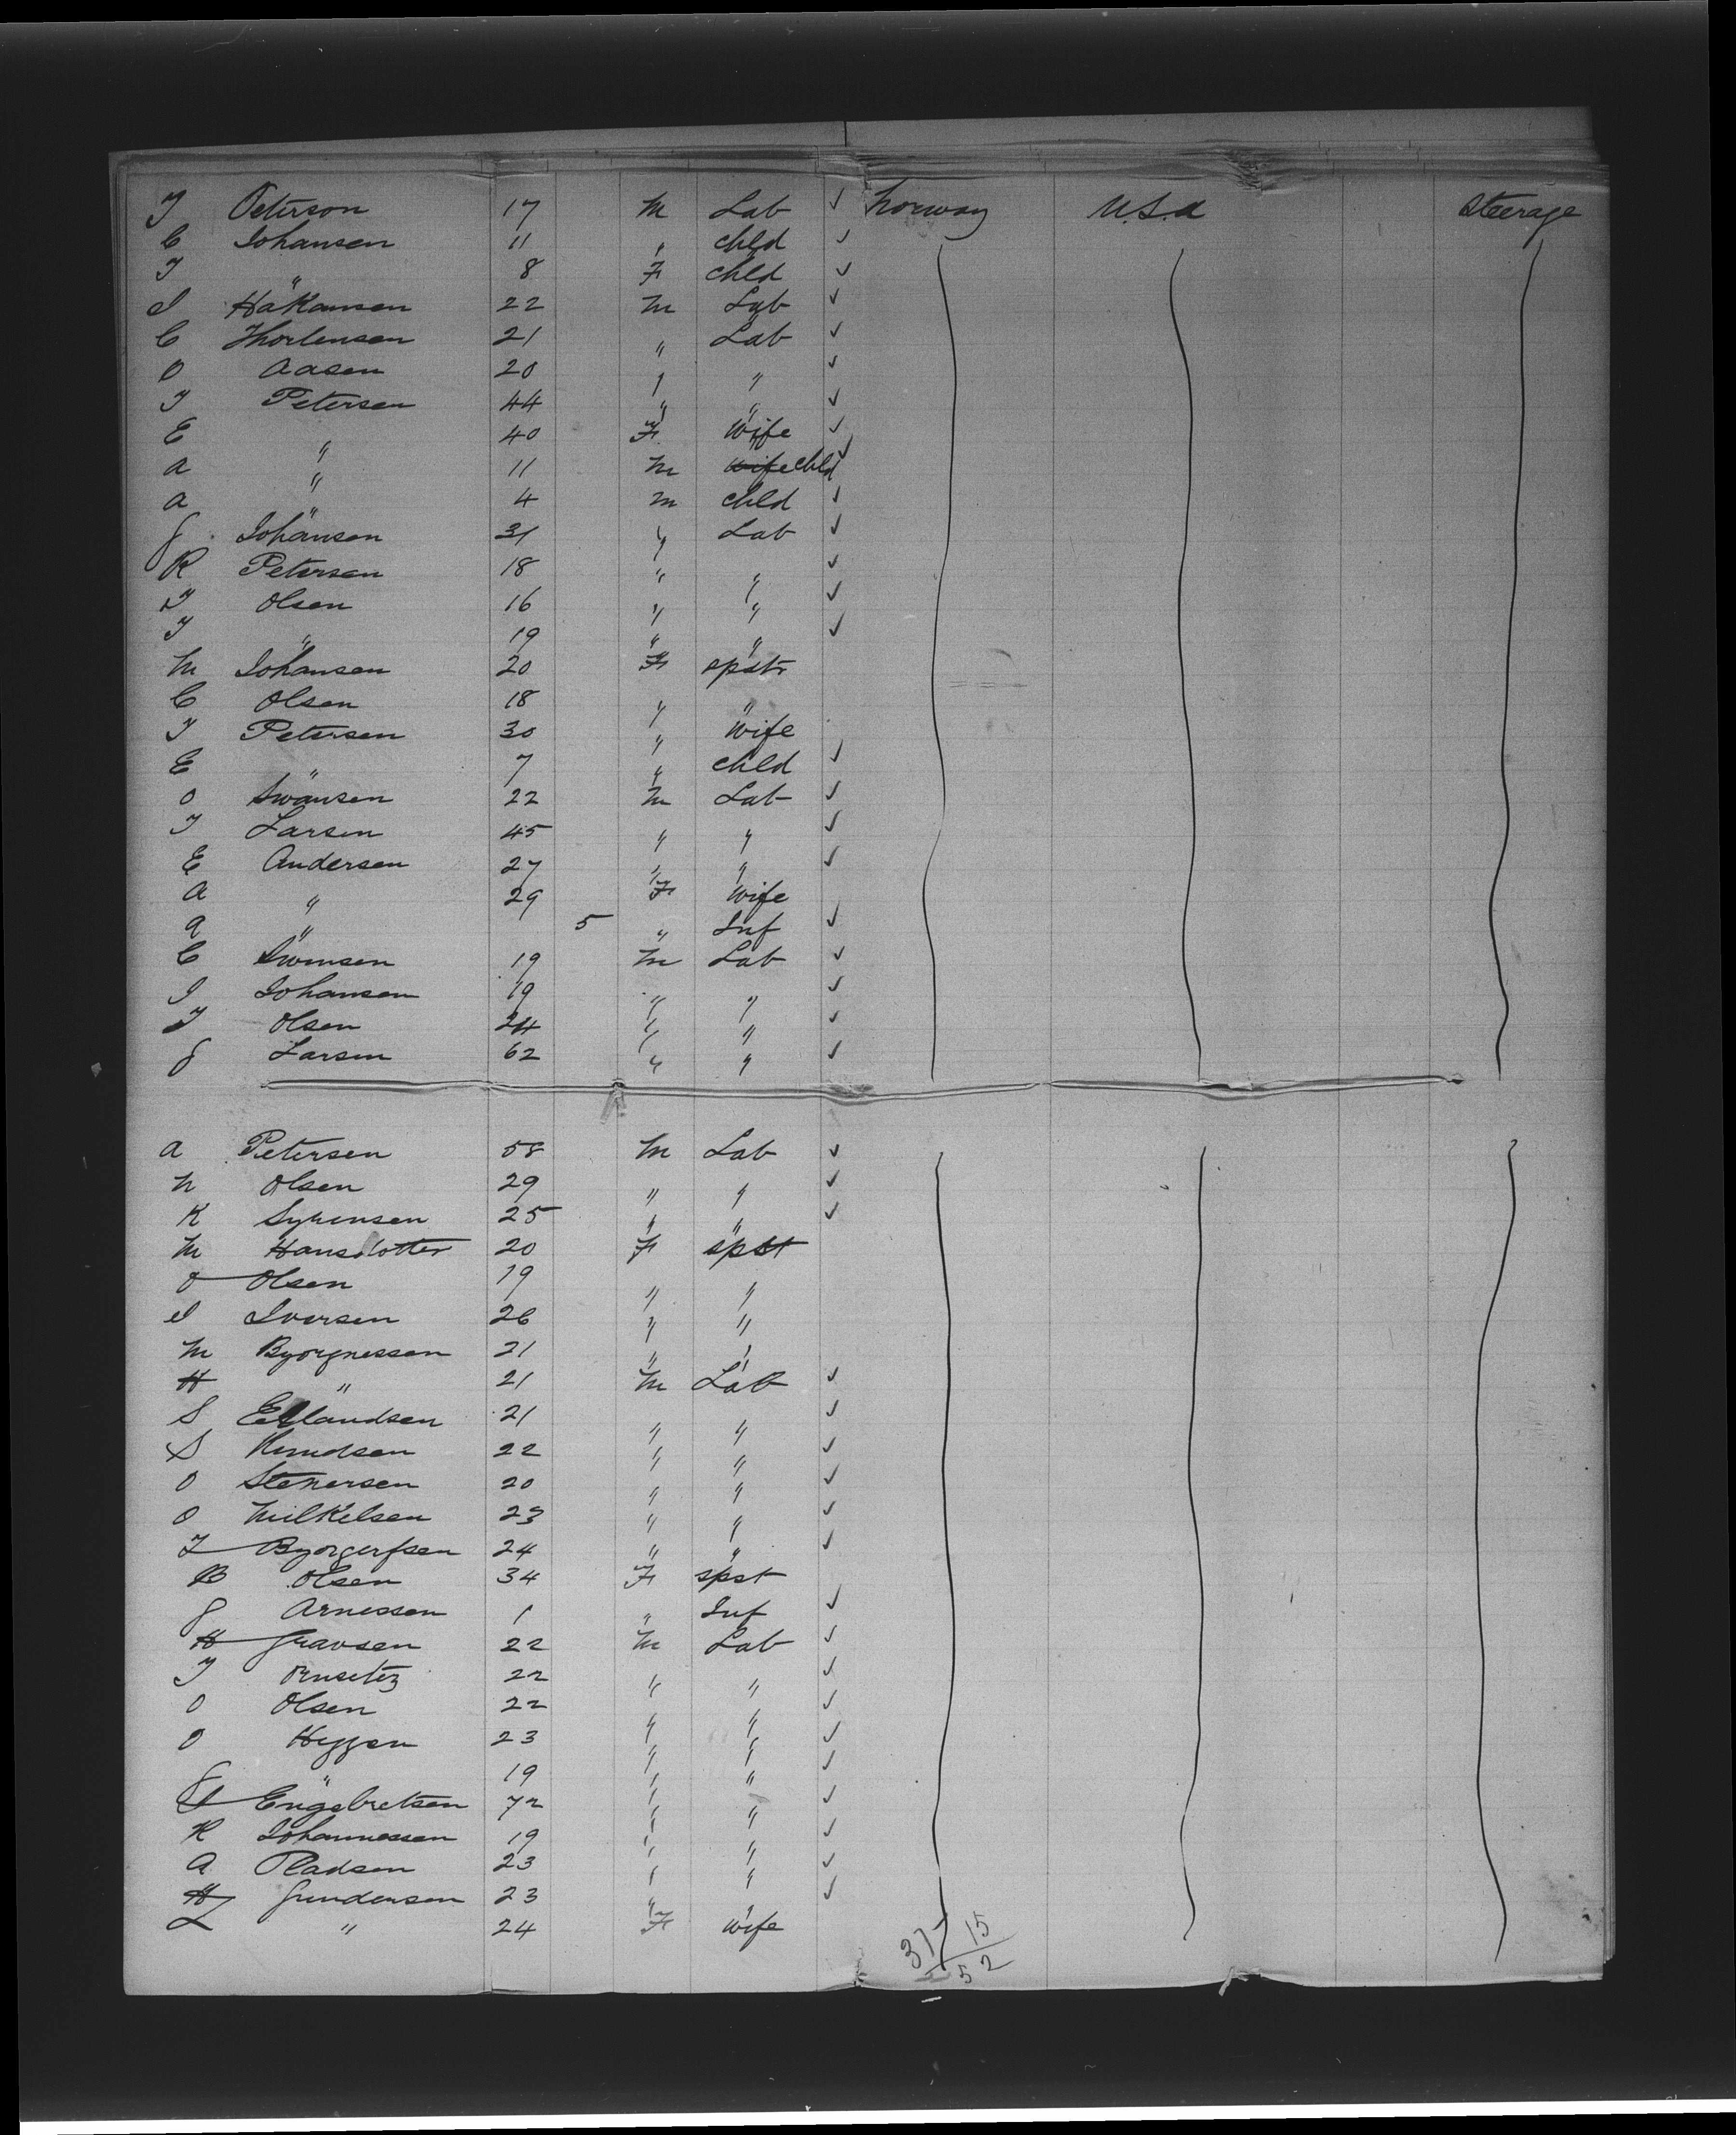 J Peterson 17 M Lab ✓ Norway U.S.A Steerage
C Johansen 11 " chld ✓
J " 8 F chld ✓
I Hakansen 22 M Lab ✓
C Thorlensen 21 " Lab ✓
O Aasen 20 " " ✓
J Petersen 44 " " ✓
E " 40 F Wife ✓
A " 11 M chld ✓
A " 4 M chld ✓
G Johansen 31 " Lab ✓
R Petersen 18 " " ✓
J Olsen 16 " " ✓
J " 19 " " ✓
M Johansen 20 F spstr
C Olsen 18 " "
J Petersen 30 " Wife
E " 7 " chld ✓
O Swansen 22 M Lab ✓
J Larsen 45 " " ✓
E Andersen 27 " " ✓
A " 29 F Wife
A " 5 " Inf ✓
C Swensen 19 M Lab ✓
J Johansen 19 " " ✓
J Olsen 24 " " ✓
G Larsen 62 " " ✓
A Petersen 58 M Lab ✓
N Olsen 29 " " ✓
K Syvensen 25 " " ✓
M Hansdotter 20 F spst
O Olsen 19 " "
I Iversen 26 " "
M Byorgnessen 21 " "
H " 21 M Lab ✓
S Ellandsen 21 " " ✓
S Knudsen 22 " " ✓
O Stenersen 20 " " ✓
O Milkelsen 23 " " ✓
I Byorgerssen 24 " " ✓
B Olsen 34 F spst
G Arnessen 1 " Inf ✓
H Gravsen 22 M Lab ✓
J Ornsetez 22 " " ✓
O Olsen 22 " " ✓
O Heggen 23 " " ✓
G " 19 " " ✓
Engebretsen 72 " " ✓
K Johannessen 19 " " ✓
A Pladsen 23 " " ✓
H Gundersen 23 " " ✓
L " 24 F wife
37 15
52